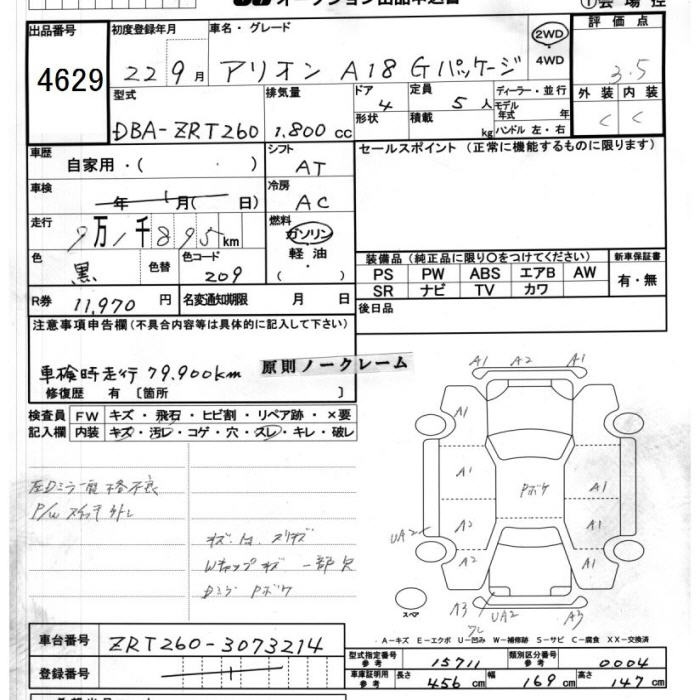 オークション出品申込書
出品番号
4629
初度登録年月
22 9月
車名・グレード
アリオン A18 Gパッケージ
2WD
4WD
評価点
3.5
外装 内装
C C
型式
DBA-ZRT260
排気量
1.800 cc
ドア 4
形状
定員 5人
積載 kg
ディーラー・並行
モデル年式 年
ハンドル 左・右
車歴 自家用・( )
シフト AT
車検 年 月( 日)
冷房 AC
走行 9万1千895km
燃料
ガソリン
軽油
( )
色 黒
色替
色コード 209
R券 11,970円
名変通知期限 月 日
セールスポイント (正常に機能するものに限ります)
装備品 (純正品に限り○をつけてください)
PS PW ABS エアB AW
SR ナビ TV カワ
新車保証書
有・無
後日品
注意事項申告欄 (不具合内容等は具体的に記入して下さい)
車検時走行 79.900km
原則ノークレーム
修復歴 有 〔箇所 〕
検査員記入欄
FW キズ・飛石・ヒビ割・リペア跡・×要
内装 キズ・汚レ・コゲ・穴・スレ・キレ・破レ
P/W スイッチ
Wキャップ キズ 一部欠
Dミラー Pボケ
A1 A2 A1
A1
A1 Pボケ A1
UA2 A2 A1
A2 A1
A3 UA2 ワレ A3
スペア
A-キズ E-エクボ U-凹み W-補修跡 S-サビ C-腐食 XX-交換済
車台番号 ZRT260-3073214
登録番号
型式指定番号 参考 15711
類別区分番号 参考 0004
車庫証明用 参考 長さ 456cm 幅 169cm 高さ 147cm